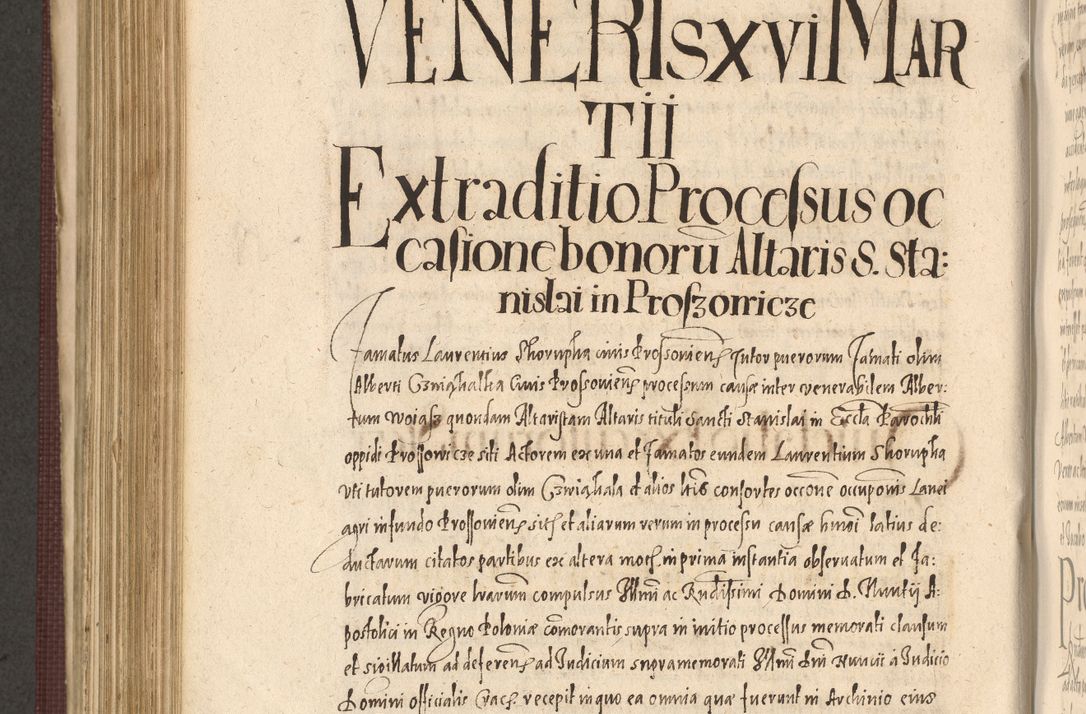 VENERIS XVI MAR
TII
Extraditio Processus oc
casione bonorū Altaris S. Sta:
nislai in Proszowicze
Famatus Laurentius Skorupka civis Prossovien̄ tutor puerorum Famati olim
Alberti Czwiqkalka Civis Prossovien̄ processum causæ inter venerabilem Alber:
tum Woiasz quondam Altaristam Altaris tituli Sancti Stanislai in Eccl̄a Parochli
oppidi Prossowicze siti Actorem ex una et Famatos eundem Laurentium Skorupka
uti tutorem puerorum olim et alios litis consortes occōne occupōnis Lanei
agri in fundo Prossovien̄ siti et aliarum rerum in processu causæ hmōi latius de:
ductarum citatos partibus ex altera mot̄ in prima instantia observatum et fa:
bricatum vigore lrarum compulsus Illmi ac Rn̄dissimi Domini D. Nuntij A:
postolici in Regno Poloniæ cōmorantis supra in initio processus memorati clausum
et sigillatum ad deferen̄ ad Judicium supramemorati Illmi Dn̄i Nuncii a Judicio
Domini officialis Crac̄ recepit in quo ea omnia quæ fuerunt in Archivio eius